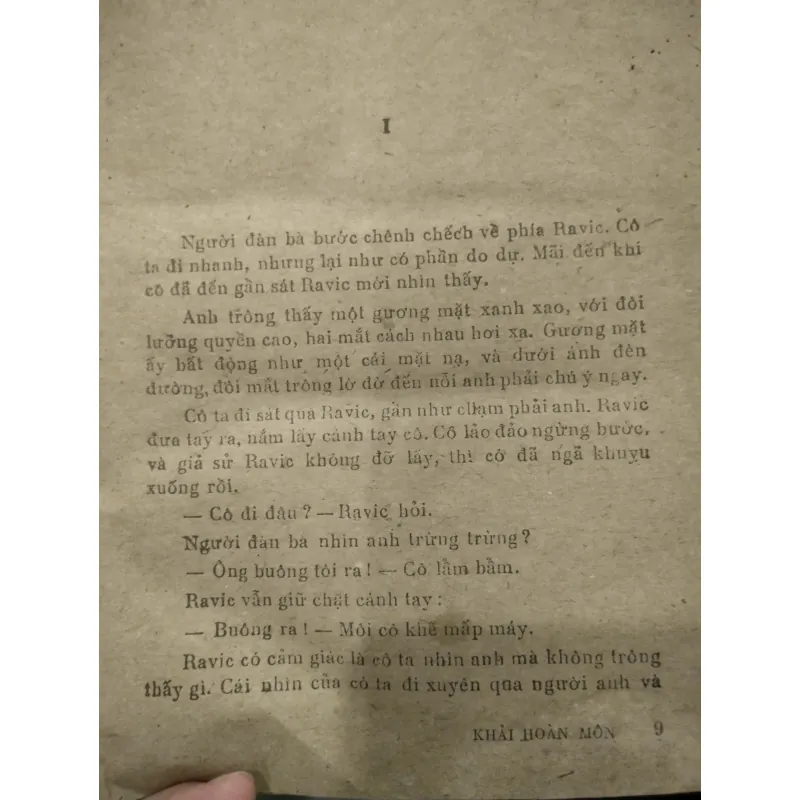 I
Người đàn bà bước chênh chếch về phía Ravic. Cô
ta đi nhanh, nhưng lại như có phần do dự. Mãi đến khi
cô đã đến gần sát Ravic mới nhìn thấy.
Anh trông thấy một gương mặt xanh xao, với đôi
lưỡng quyền cao, hai mắt cách nhau hơi xa. Gương mặt
ấy bất động như một cái mặt nạ, và dưới ánh đèn
đường, đôi mắt trông lờ đờ đến nỗi anh phải chú ý ngay.
Cô ta đi sát qua Ravic, gần như chạm phải anh. Ravic
đưa tay ra, nắm lấy cánh tay cô. Cô lảo đảo ngừng bước,
và giả sử Ravic không đỡ lấy, thì cô đã ngã khuyu
xuống rồi.
— Cô đi đâu ? — Ravic hỏi.
Người đàn bà nhìn anh trừng trừng?
— Ông buông tôi ra ! — Cô lầm bầm.
Ravic vẫn giữ chặt cánh tay :
— Buông ra ! — Môi cô khẽ mấp máy.
Ravic có cảm giác là cô ta nhìn anh mà không trông
thấy gì. Cái nhìn của cô ta đi xuyên qua người anh và
KHẢI HOÀN MÔN 9